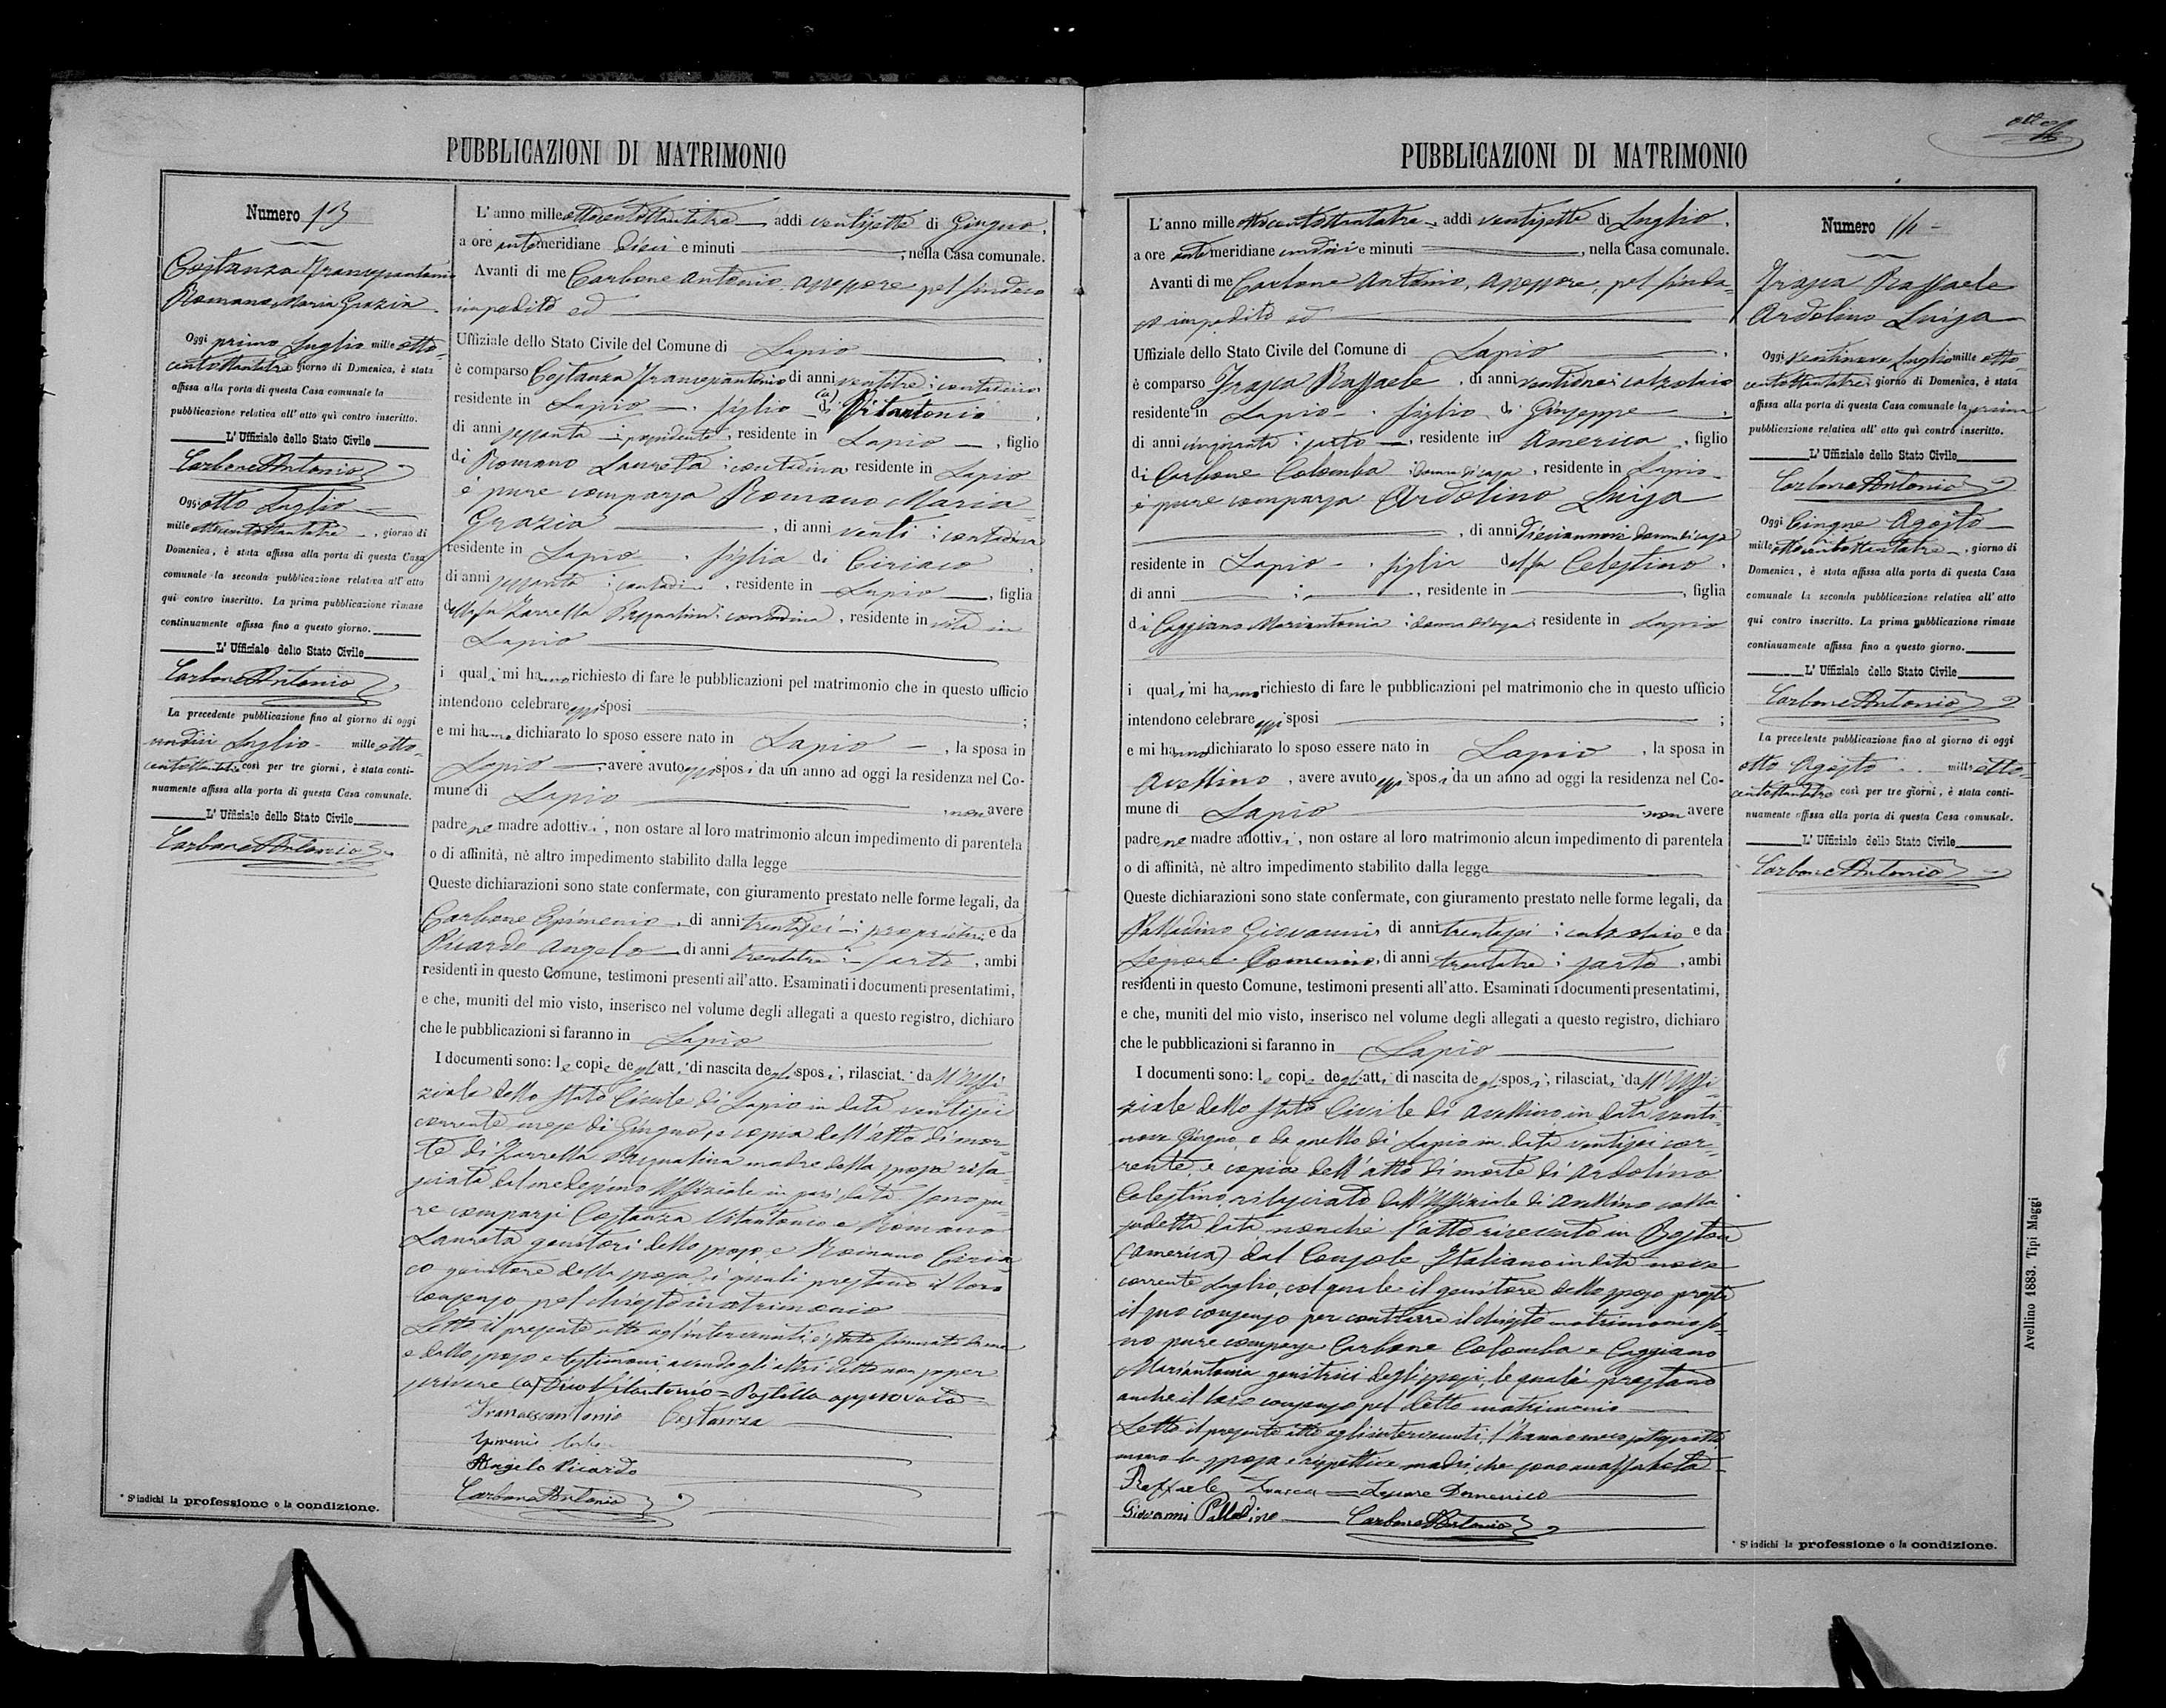 PUBBLICAZIONI DI MATRIMONIO
Numero 13
Costanza Francescantonio
Romano Maria Grazia
Oggi primo Luglio mille otto-
centottantatre giorno di Domenica, è stata
affissa alla porta di questa Casa comunale la
pubblicazione relativa all' atto quì contro inscritto.
L' Uffiziale dello Stato Civile
Carbone Antonio
Oggi otto Luglio
mille ottocentottantatre, giorno di
Domenica, è stata affissa alla porta di questa Casa
comunale la seconda pubblicazione relativa all' atto
qui contro inscritto. La prima pubblicazione rimase
continuamente affissa fino a questo giorno.
L' Uffiziale dello Stato Civile
Carbone Antonio
La precedente pubblicazione fino al giorno di oggi
undici Luglio mille otto-
centottantatre così per tre giorni, è stata conti-
nuamente affissa alla porta di questa Casa comunale.
L' Uffiziale dello Stato Civile
Carbone Antonio
* S' indichi la professione o la condizione.
L' anno mille ottocentottantatre addi ventisette di Giugno,
a ore antemeridiane dieci e minuti , nella Casa comunale.
Avanti di me Carbone Antonio, assessore pel sindaco
impedito ed
Uffiziale dello Stato Civile del Comune di Lapio,
è comparso Costanza Francescantonio di anni ventitre; contadino
residente in Lapio, figlio (a) di Vitantonio,
di anni sessanta; possidente, residente in Lapio, figlio
di Romano Laureta; contadina residente in Lapio
è pure comparsa Romano Maria
Grazia, di anni venti; contadina
residente in Lapio, figlia di Ciriaco,
di anni sessanta; contadino, residente in Lapio, figlia
della fu Zarrella Pasqualina; contadina, residente in vita in
Lapio
i quali mi hanno richiesto di fare le pubblicazioni pel matrimonio che in questo ufficio
intendono celebrare essi sposi ;
e mi hanno dichiarato lo sposo essere nato in Lapio, la sposa in
Lapio, avere avuto essi sposi da un anno ad oggi la residenza nel Co-
mune di Lapio, non avere
padre ne madre adottivi, non ostare al loro matrimonio alcun impedimento di parentela
o di affinità, nè altro impedimento stabilito dalla legge
Queste dichiarazioni sono state confermate, con giuramento prestato nelle forme legali, da
Carbone Epimenio, di anni trentasei; proprietario e da
Ricardo Angelo di anni trentatre; sarto, ambi
residenti in questo Comune, testimoni presenti all'atto. Esaminati i documenti presentatimi,
e che, muniti del mio visto, inserisco nel volume degli allegati a questo registro, dichiaro
che le pubblicazioni si faranno in Lapio
I documenti sono: le copie degli atti di nascita degli sposi, rilasciati dall'Uffi-
ziale dello Stato Civile di Lapio in data ventisei
corrente mese di Giugno, e copia dell'atto di mor-
te di Zarrella Pasqualina madre della sposa rila-
sciata dal medesimo Uffiziale in pari data. Sono pu-
re comparsi Costanza Vitantonio e Romano
Laureta genitori dello sposo, e Romano Ciria-
co genitore della sposa, i quali prestano il loro
consenso pel chiesto matrimonio
Letto il presente atto agl'intervenuti, è stato firmato da me
e dallo sposo e testimoni avendo gli altri detto non saper
scrivere (a) Dico Vitantonio = Postilla approvata =
Francescantonio Costanza
Epimenio Carbone
Angelo Ricardo
Carbone Antonio
PUBBLICAZIONI DI MATRIMONIO
otto
L' anno mille ottocentottantatre, addi ventisette di Luglio,
a ore antemeridiane undici e minuti , nella Casa comunale.
Avanti di me Carbone Antonio, assessore, pel sinda-
co impedito ed
Uffiziale dello Stato Civile del Comune di Lapio,
è comparso Frasca Raffaele, di anni ventinove; calzolaio
residente in Lapio, figlio di Giuseppe,
di anni cinquanta; sarto, residente in America, figlio
di Carbone Colomba; donna di casa, residente in Lapio
è pure comparsa Ardolino Luisa
, di anni diciannove donna di casa
residente in Lapio, figlia del fu Celestino,
di anni ; , residente in , figlia
di Caggiano Mariantonia; donna di casa; residente in Lapio
i quali mi hanno richiesto di fare le pubblicazioni pel matrimonio che in questo ufficio
intendono celebrare essi sposi ;
e mi hanno dichiarato lo sposo essere nato in Lapio, la sposa in
Avellino, avere avuto essi sposi da un anno ad oggi la residenza nel Co-
mune di Lapio non avere
padre ne madre adottivi, non ostare al loro matrimonio alcun impedimento di parentela
o di affinità, nè altro impedimento stabilito dalla legge
Queste dichiarazioni sono state confermate, con giuramento prestato nelle forme legali, da
Palladino Giovanni, di anni trentasei; calzolaio e da
Lepore Domenico, di anni trentatre; sarto, ambi
residenti in questo Comune, testimoni presenti all'atto. Esaminati i documenti presentatimi,
e che, muniti del mio visto, inserisco nel volume degli allegati a questo registro, dichiaro
che le pubblicazioni si faranno in Lapio
I documenti sono: le copie degli atti di nascita degli sposi, rilasciati dall'Uffi-
ziale dello Stato Civile di Avellino in data venti-
nove Giugno, e da quello di Lapio in data ventisei cor-
rente, e copia dell'atto di morte di Ardolino
Celestino, rilasciato dall'Uffiziale di Avellino colla
sudetta data, nonchè l'atto ricevuto in Boston
(America) dal Console Italiano in data nove
corrente Luglio, col quale il genitore dello sposo presta
il suo consenso per contrarre il chiesto matrimonio. So-
no pure comparse Carbone Colomba e Caggiano
Mariantonia genitrici degli sposi, le quali prestano
anche il loro consenso pel detto matrimonio
Letto il presente atto agli intervenuti, l'hanno meco sottoscritto
meno la sposa e rispettive madri, che sono analfabeta
Raffaele Frasca = Lepore Domenico
Giovanni Palladino Carbone Antonio
Numero 14
Frasca Raffaele
Ardolino Luisa
Oggi ventinove Luglio mille otto-
centottantatre, giorno di Domenica, è stata
affissa alla porta di questa Casa comunale la prima
pubblicazione relativa all' atto quì contro inscritto.
L' Uffiziale dello Stato Civile
Carbone Antonio
Oggi Cinque Agosto
mille ottocentottantatre, giorno di
Domenica, è stata affissa alla porta di questa Casa
comunale la seconda pubblicazione relativa all' atto
qui contro inscritto. La prima pubblicazione rimase
continuamente affissa fino a questo giorno.
L' Uffiziale dello Stato Civile
Carbone Antonio
La precedente pubblicazione fino al giorno di oggi
otto Agosto mille otto-
centottantatre così per tre giorni, è stata conti-
nuamente affissa alla porta di questa Casa comunale.
L' Uffiziale dello Stato Civile
Carbone Antonio
Avellino 1883. Tipi Maggi
* S' indichi la professione o la condizione.